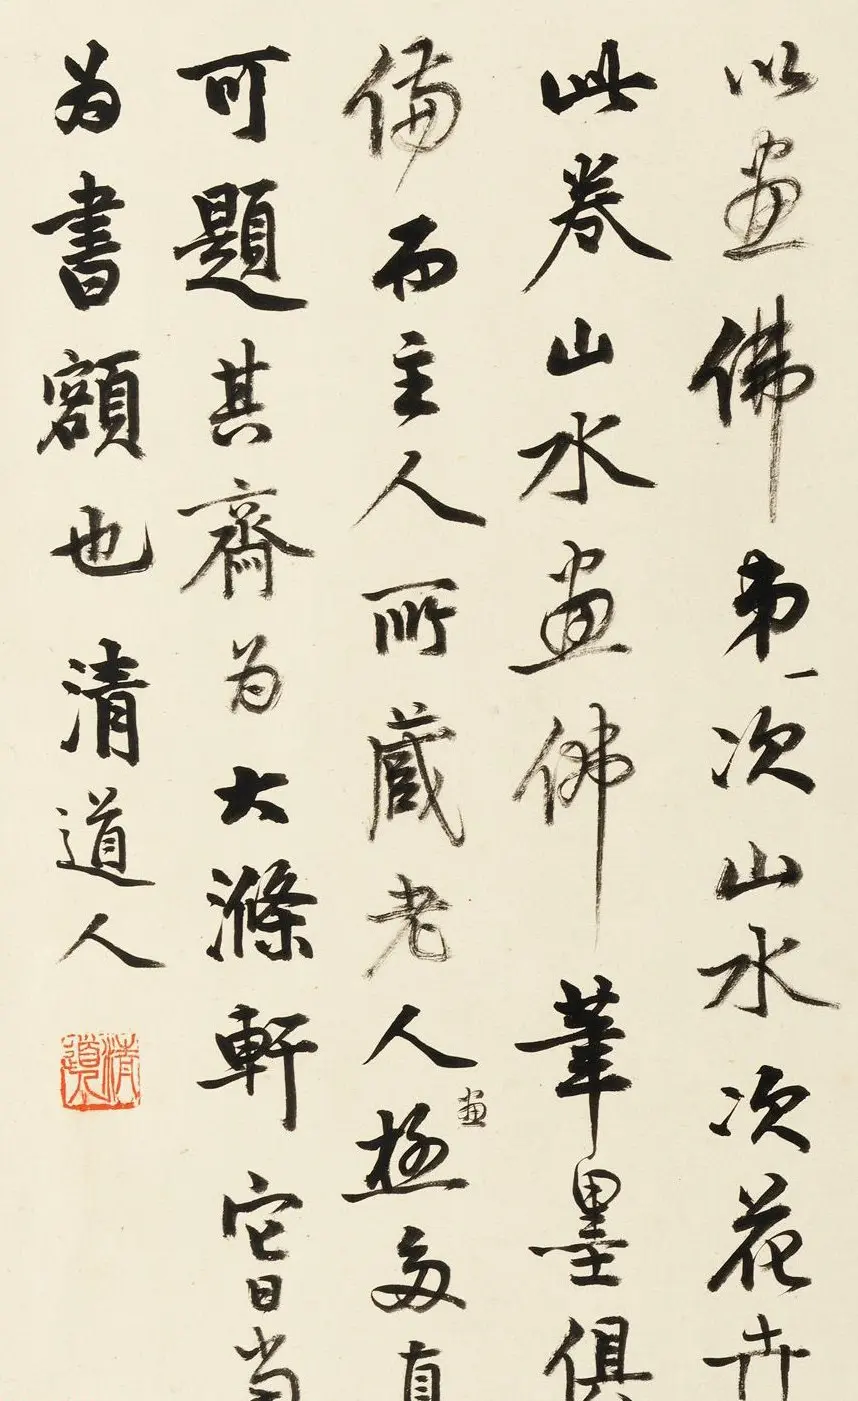 以画佛弟一次山水次花卉
此卷山水画佛筆墨俱
備而主人所蔵老人画極多直
可題其齋为大滌軒它日当
为書額也 清道人
清道人